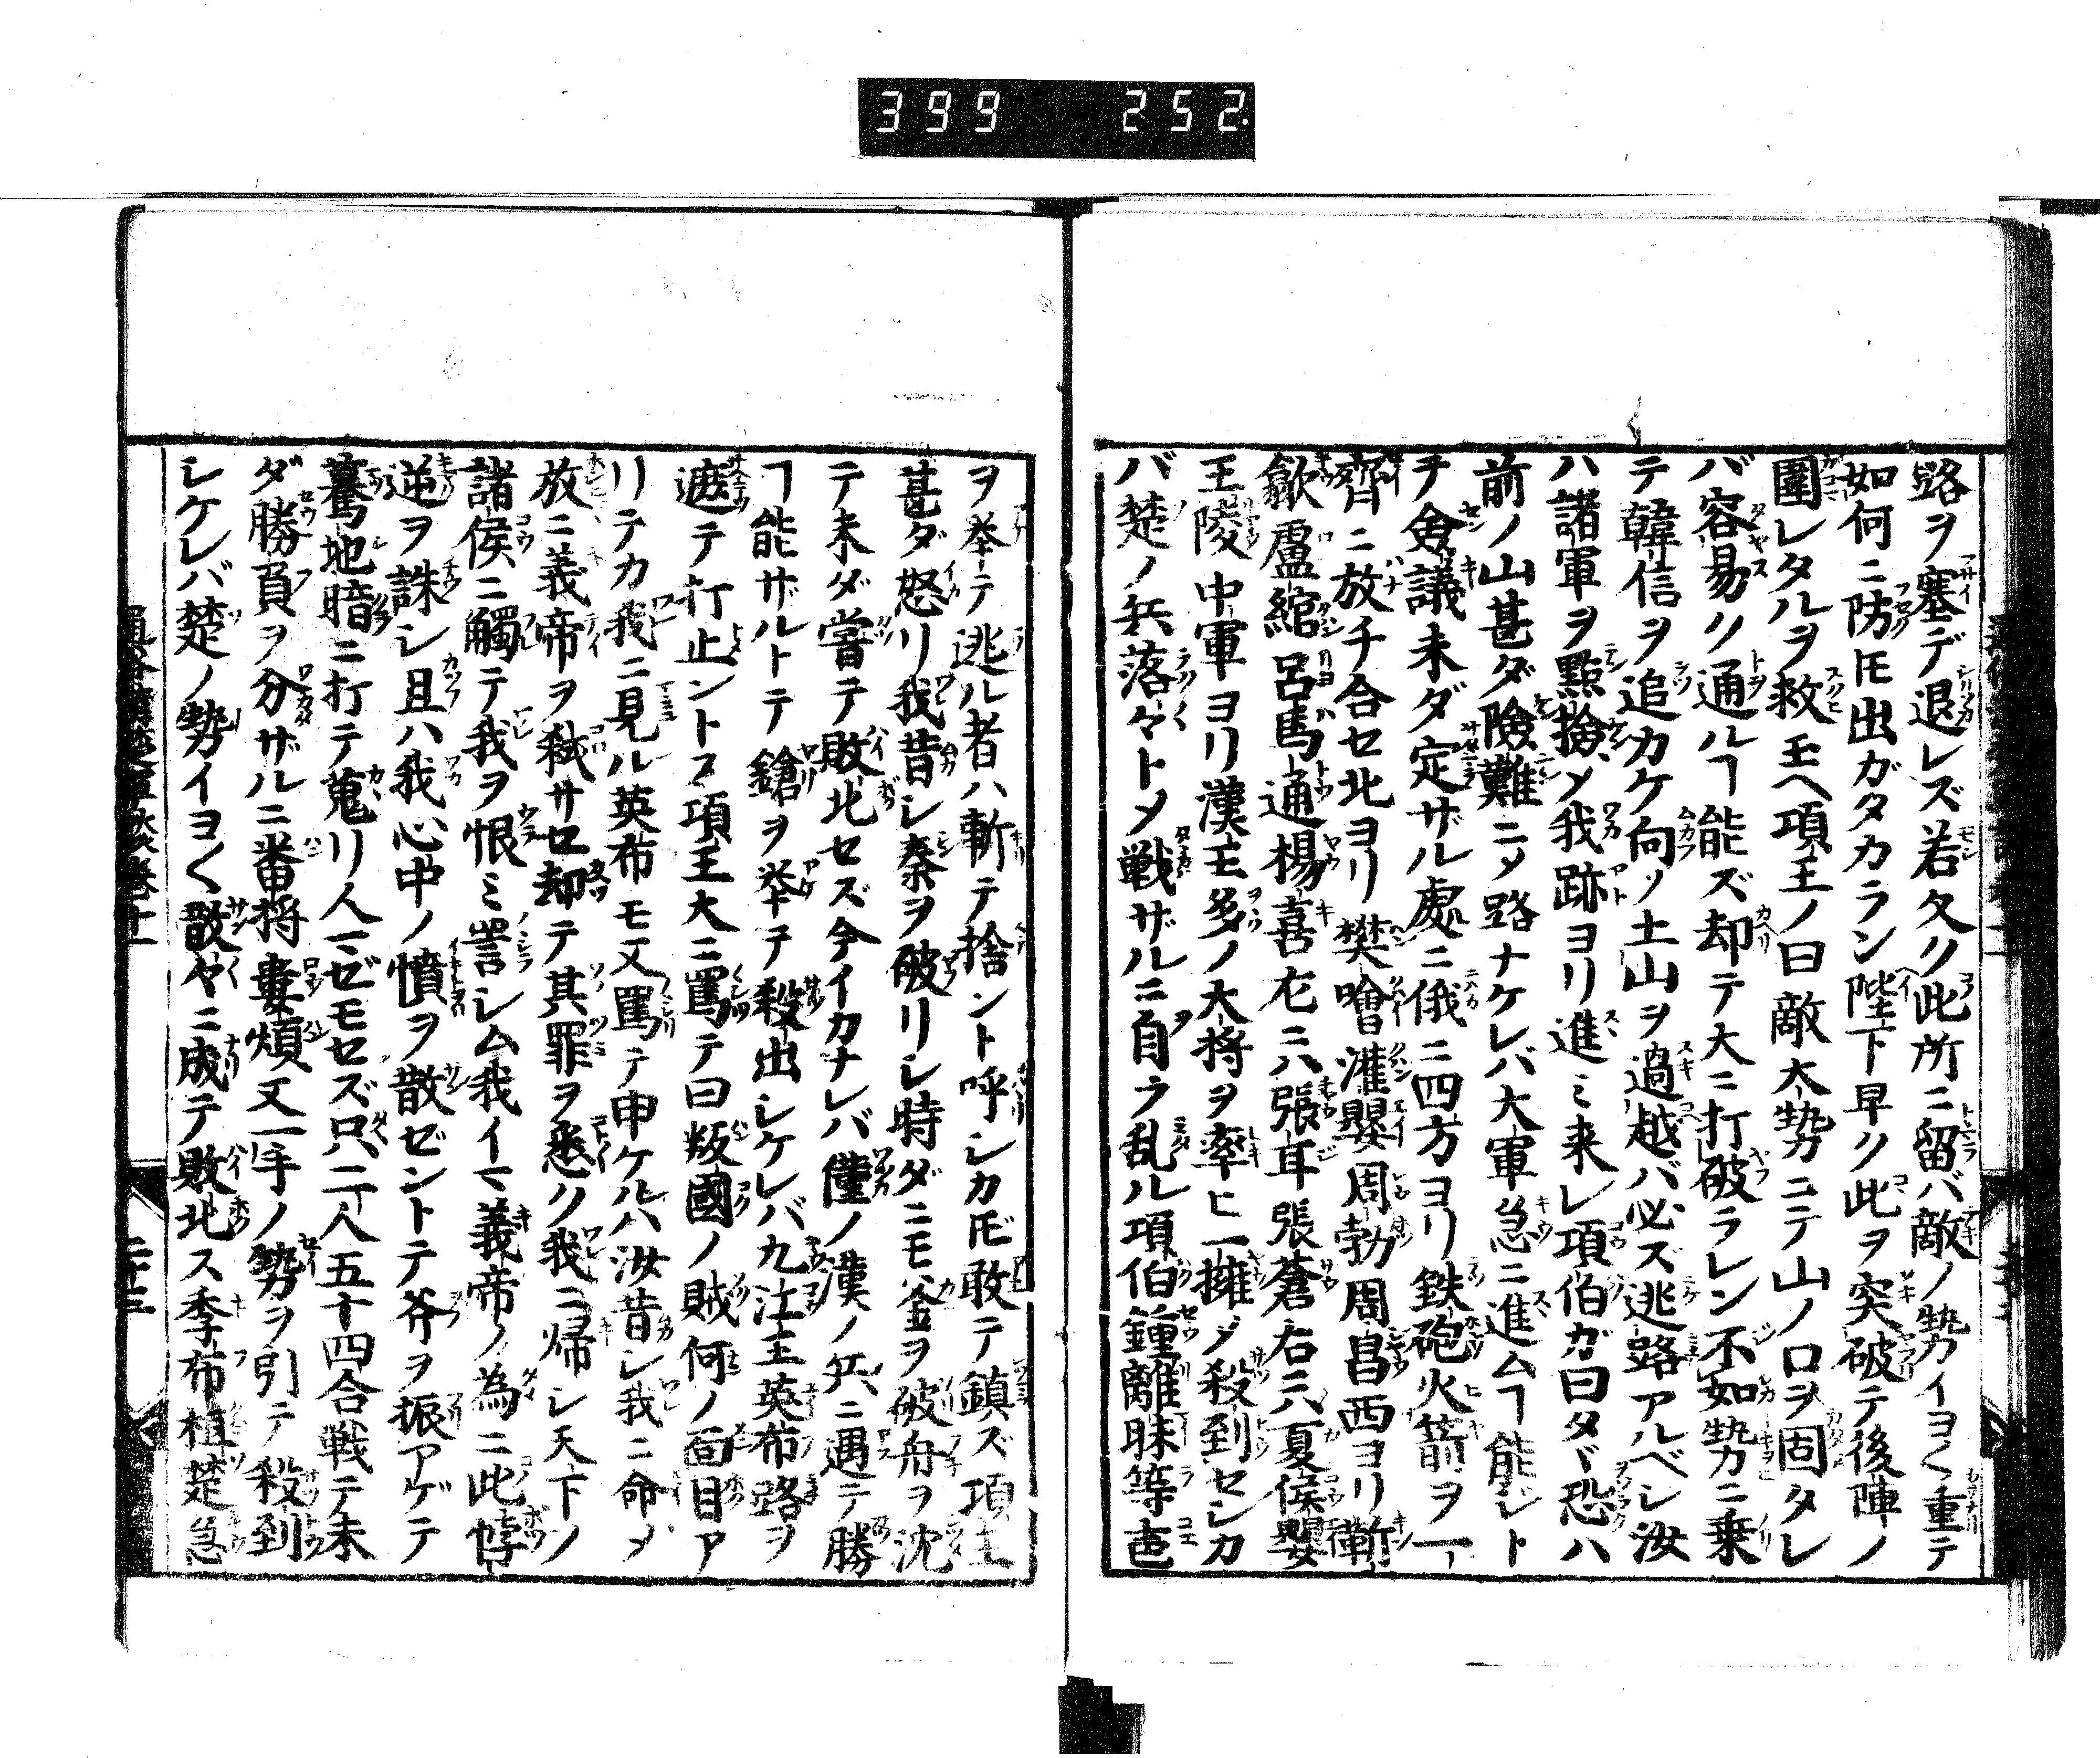 399 252.
路ヲ塞デ退レズ若久ク此所ニ留バ敵ノ勢イヨ〱重テ
如何ニ防𪜈出ガタカラン陛下早ク此ヲ突破テ後陣ノ
圍レタルヲ救玉ヘ項王ノ曰敵大勢ニテ山ノ口ヲ固タレ
バ容易ク通ルヿ能ズ却テ大ニ打破ラレン不如勢ニ乗
テ韓信ヲ追カケ向ノ土山ヲ過越バ必ズ逃路アルベシ汝
ハ諸軍ヲ點撿〆我跡ヨリ進ミ来レ項伯ガ曰タヾ恐ハ
前ノ山甚ダ險難ニ〆路ナケレバ大軍急ニ進ムヿ能シト
テ僉議未ダ定ザル處ニ俄ニ四方ヨリ鉄砲火箭ヲ一
齊ニ放チ合セ北ヨリ樊噲灌嬰周勃周昌西ヨリ靳
歙盧綰呂馬通楊喜左ニハ張耳張蒼右ニハ夏侯嬰
王陵中軍ヨリ漢王多ノ大将ヲ率ヒ一擁ゞ殺到セシカ
バ楚ノ兵落々ト〆戦ザルニ自ラ乱ル項伯鍾離昧等声
ヲ挙テ逃ル者ハ斬テ捨ント呼シカ𪜈敢テ鎮ズ項王
甚ダ怒リ我昔シ秦ヲ破リシ時ダニモ釜ヲ破舟ヲ沈
テ未ダ嘗テ敗北セズ今イカナレバ僅ノ漢ノ兵ニ遇テ勝
ヿ能ザルトテ鎗ヲ挙テ殺出シケレバ九江王英布路ヲ
遮テ打止ントス項王大ニ罵テ曰叛國ノ賊何ノ面目ア
リテカ我ニ見ル英布モ又罵テ申ケルハ汝昔シ我ニ命〆
放ニ義帝ヲ弑サセ却テ其罪ヲ悉ク我ニ帰シ天下ノ
諸侯ニ觸テ我ヲ恨ミ詈シム我イマ義帝ノ為ニ此悖
逆ヲ誅シ且ハ我心中ノ憤ヲ散ゼントテ斧ヲ振アゲテ
驀地暗ニ打テ蒐リ人マゼモセズ只二人五十四合戦テ未
ダ勝負ヲ分ザルニ番将婁煩又一手ノ勢ヲ引テ殺到
シケレバ楚ノ勢イヨ〱散々ニ成テ敗北ス季布桓楚急